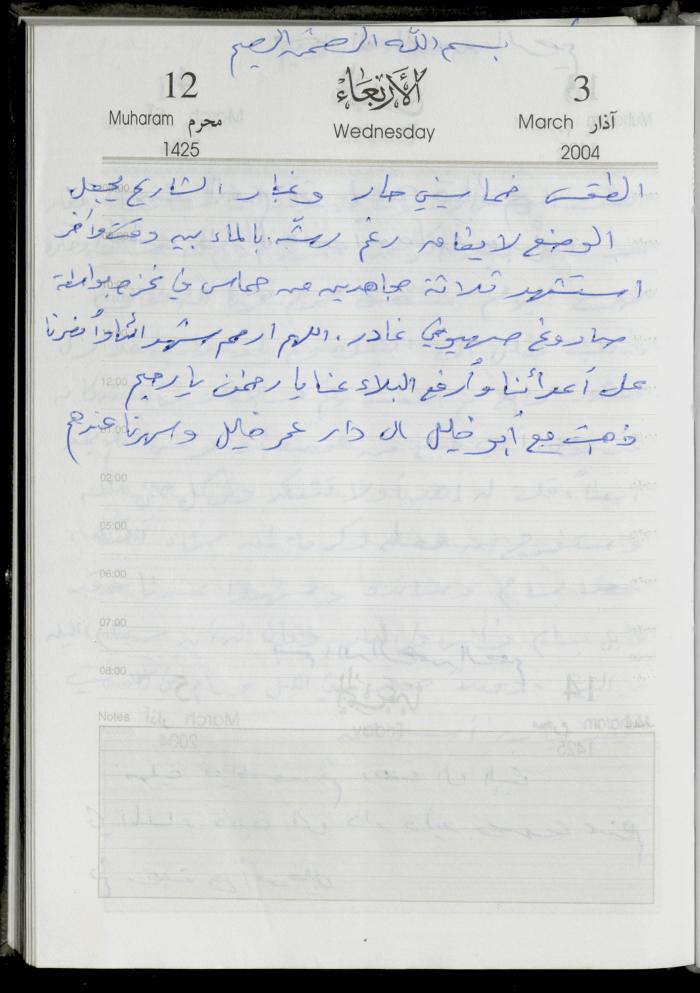 بسم الله الرحمن الرحيم
12 الأربعاء 3
Muharam محرم Wednesday March آذار
1425 2004
الطقس خماسيني حار وغبار الشارع يجعل
الوضع لا يطاق رغم رشه بالماء بين وقت وآخر
استشهد ثلاثة مجاهدين من حماس في غزة بواسطة
صاروخ صهيوني غادر. اللهم ارحم شهدائنا وأنصرنا
على أعدائنا وأرفع البلاء عنا يا رحمن يا رحيم
12:00
ذهبت مع أبو خليل الى دار عمر خليل واسهرنا عندهم
02:00
05:00
06:00
07:00
08:00
Notes